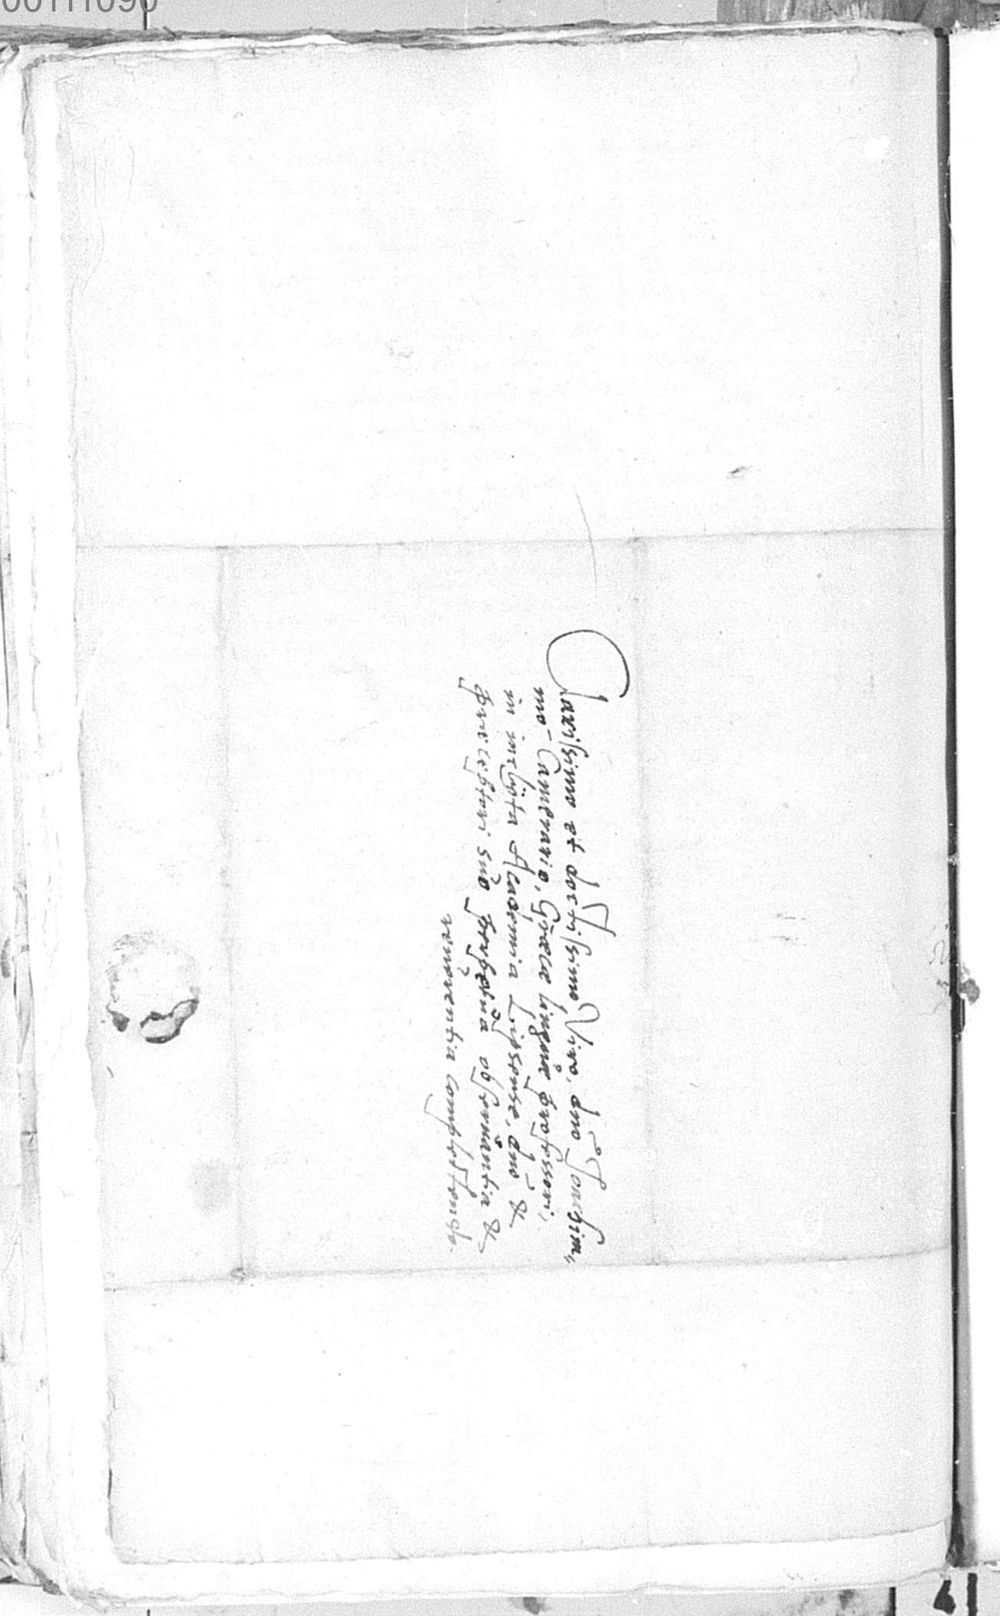 Clarissimo et doctissimo Viro, dno Joachim,
mo Camerario, Græcæ linguæ professori,
in inclyta Academia Lipsense, dno &
præceptori suo perpetua observantia &
reverentia complectendo.
00111090